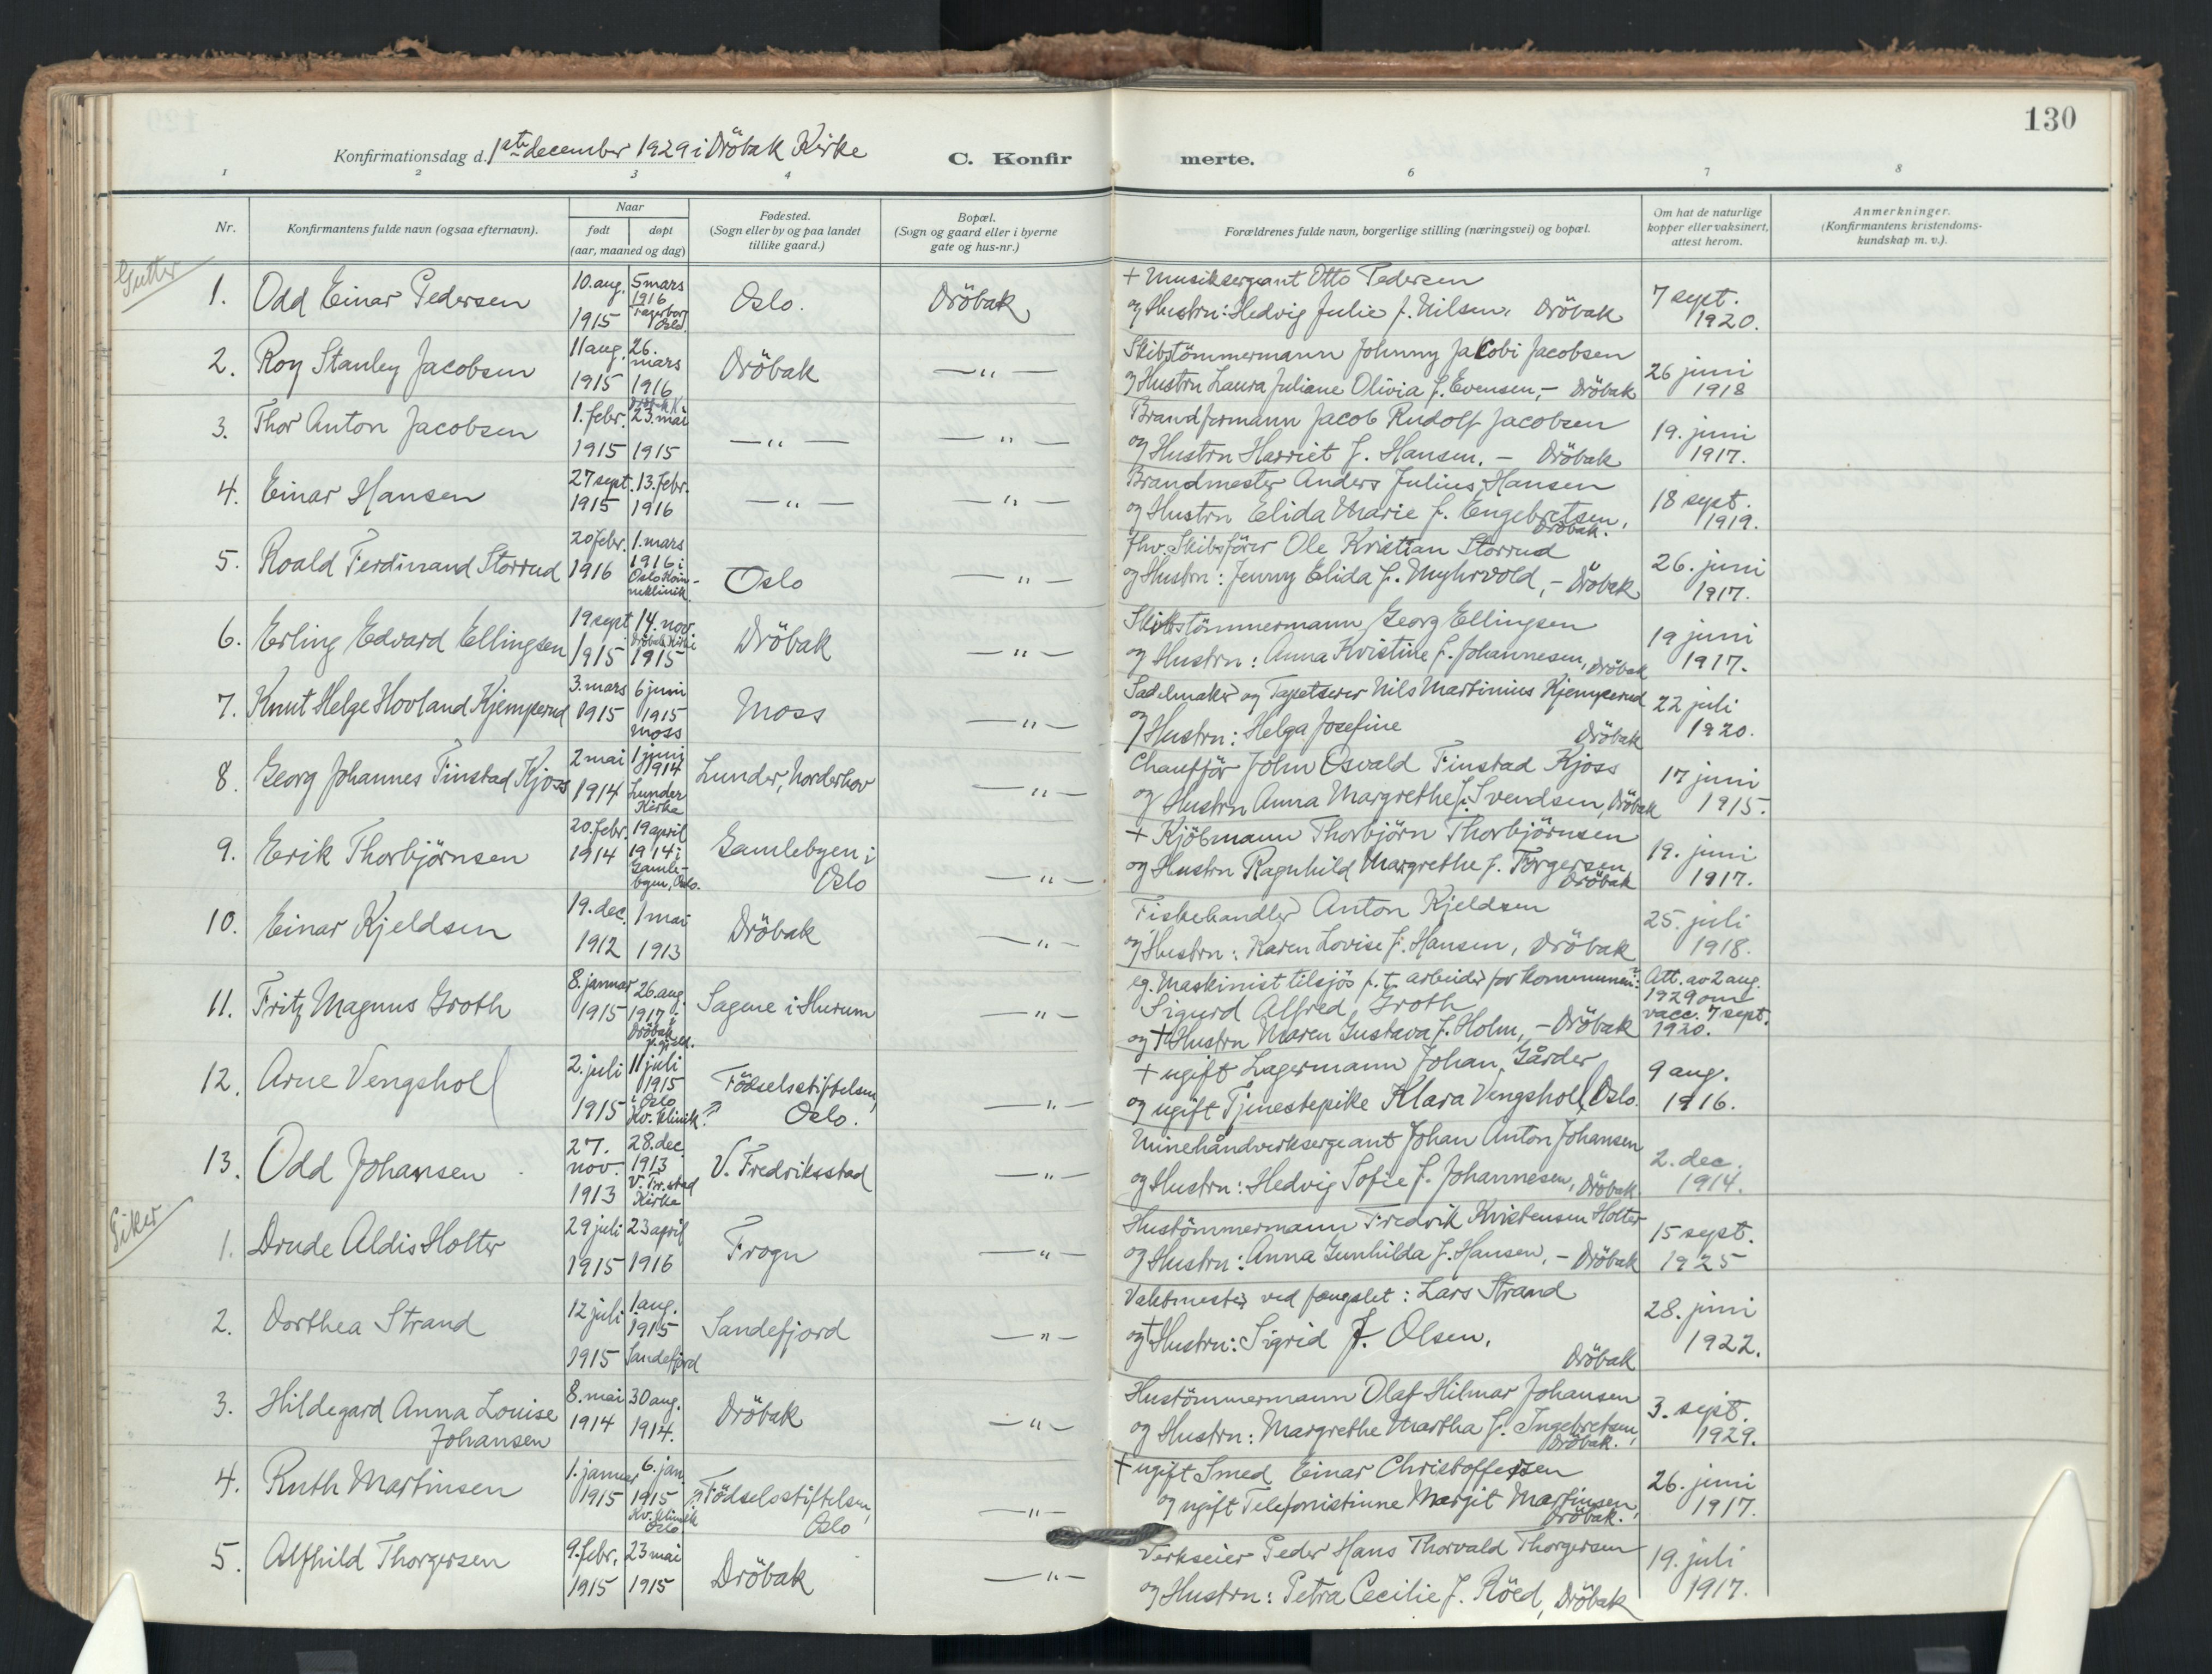 130
Konfirmationsdag d. 1ste december 1929 i Dröbak Kirke
C. Konfirmerte.
1 2 3 4 6 7 8
Nr.
Konfirmantens fulde navn (ogsaa efternavn).
Naar
født
døpt
(aar, maaned og dag)
Fødested.
(Sogn eller by og paa landet
tillike gaard.)
Bopæl.
(Sogn og gaard eller i byerne
gate og hus-nr.)
Forældrenes fulde navn, borgerlige stilling (næringsvei) og bopæl.
Om hat de naturlige
kopper eller vaksinert,
attest herom.
Anmerkninger.
(Konfirmantens kristendoms-
kundskap m. v.).
Gutter
1. Odd Einar Pedersen
10. aug. 1915
5 mars 1916 Fagerborg Oslo.
Oslo.
Dröbak
+ Musiksergeant Otto Pedersen
og Hustru: Hedvig Julie f. Nilsen, Dröbak
7 sept. 1920.
2. Roy Stanley Jacobsen
11 aug. 1915
26. mars 1916 Dröbak K.
Dröbak
— " —
Skibstömmermann Johnny Jacobi Jacobsen
og Hustru Laura Juliane Olivia f. Evensen, - Dröbak
26 juni 1918
3. Thor Anton Jacobsen
1. febr. 1915
23. mai 1915
— " —
— " —
Brandformann Jacob Rudolf Jacobsen
og Hustru Harriet f. Hansen. - Dröbak
19. juni 1917.
4. Einar Hansen
27 sept. 1915
13. febr. 1916
— " —
— " —
Brandmester Anders Julius Hansen
og Hustru Elida Marie f. Engebretsen,
Dröbak.
18 sept. 1919.
5. Roald Ferdinand Storrud
20 febr. 1916
1. mars 1916 i Oslo Kvin-neklinik.
Oslo
— " —
fhv. Skibsförer Ole Kristian Storrud
og Hustru: Jenny Elida f. Myhrvold, - Dröbak
26. juni 1917.
6. Erling Edvard Ellingsen
19 sept 1915
14. nov. Dröbak Kirke 1915
Dröbak
— " —
Skibstömmermann Georg Ellingsen
og Hustru: Anna Kristine f. Johannesen, Dröbak
19 juni 1917.
7. Knut Helge Hovland Kjemperud
3. mars 1915
6 juni 1915 Moss
Moss
— " —
Sadelmaker og Tapetserer Nils Martinius Kjemperud
og Hustru: Helga Josefine
Dröbak
22 juli 1920.
8. Georg Johannes Finstad Kjoss
2 mai 1914
1 juni 1914 Lunder Kirke
Lunder, Norderhov
— " —
Chauffør John Osvald Finstad Kjoss
og Hustru Anna Margrethe f. Svendsen, Dröbak
17 juni 1915.
9. Erik Thorbjörnsen
20. febr. 1914
19 april 1914 i Gamle-byen, Oslo.
Gamlebyen i Oslo
— " —
+ Kjöbmann Thorbjörn Thorbjörnsen
og Hustru Ragnhild Margrethe f. Torgersen,
Dröbak
19. juni 1917.
10. Einar Kjeldsen
19. dec. 1912
1 mai 1913
Dröbak
— " —
Fiskehandler Anton Kjeldsen
og Hustru: Karen Lovise f. Hansen, Dröbak
25. juli 1918.
11. Fritz Magnus Groth
8. januar 1915
26. aug. 1917 i Dröbak
Sagene i Hurum
— " —
eg. Maskinist tilsjös f. t. arbeider for kommunen:
Sigurd Alfred Groth
og + Hustru Maren Gustava f. Holm, - Dröbak
Att. av 2 aug. 1929 om vacc. 7 sept. 1920.
12. Arne Vengsholl
2. juli 1915
11 juli 1915 i Oslo Kv. klinik?
Födselsstiftelsen, Oslo.
— " —
+ ugift Lagermann Johan Gårder
og ugift Tjenestepike Klara Vengsholl, Oslo.
9 aug. 1916.
13. Odd Johansen
27. nov. 1913
28. dec. 1913 V. Fr.stad Kirke
V. Fredriksstad
— " —
Minehåndverksergeant Johan Anton Johansen
og Hustru: Hedvig Sofie f. Johannesen, Dröbak.
2. dec. 1914.
Piker
1. Drude Aldis Holter
29 juli 1915
23 april 1916
Frogn
— " —
Hustömmermann Fredrik Kristensen Holter
og Hustru: Anna Gunhilda f. Hansen, - Dröbak
15 sept. 1925
2. Dorthea Strand
12 juli 1915
1 aug. 1915 Sandefjord
Sandefjord
— " —
Vaktmester ved fængslet: Lars Strand
og + Hustru: Sigrid f. Olsen.
Dröbak
28. juni 1922.
3. Hildegard Anna Louise Johansen
8. mai 1914
30 aug. 1914.
Dröbak
— " —
Hustömmermann Olaf Hilmar Johansen
og Hustru: Margrethe Martha f. Ingebretsen,
Dröbak.
3. sept. 1929.
4. Ruth Martinsen
1. januar 1915
6. jan. 1915 Kv. klinik Oslo
? Födselsstiftelsen, Oslo
— " —
+ ugift Smed Einar Christoffersen
og ugift Telefonistinne Margit Martinsen,
Dröbak.
26. juni 1917.
5. Alfhild Thorgersen
9. febr. 1915
23 mai 1915
Dröbak
— " —
Verkseier Peder Hans Thorvald Thorgersen
og Hustru: Petra Cecilie f. Röed, Dröbak
19. juli 1917.